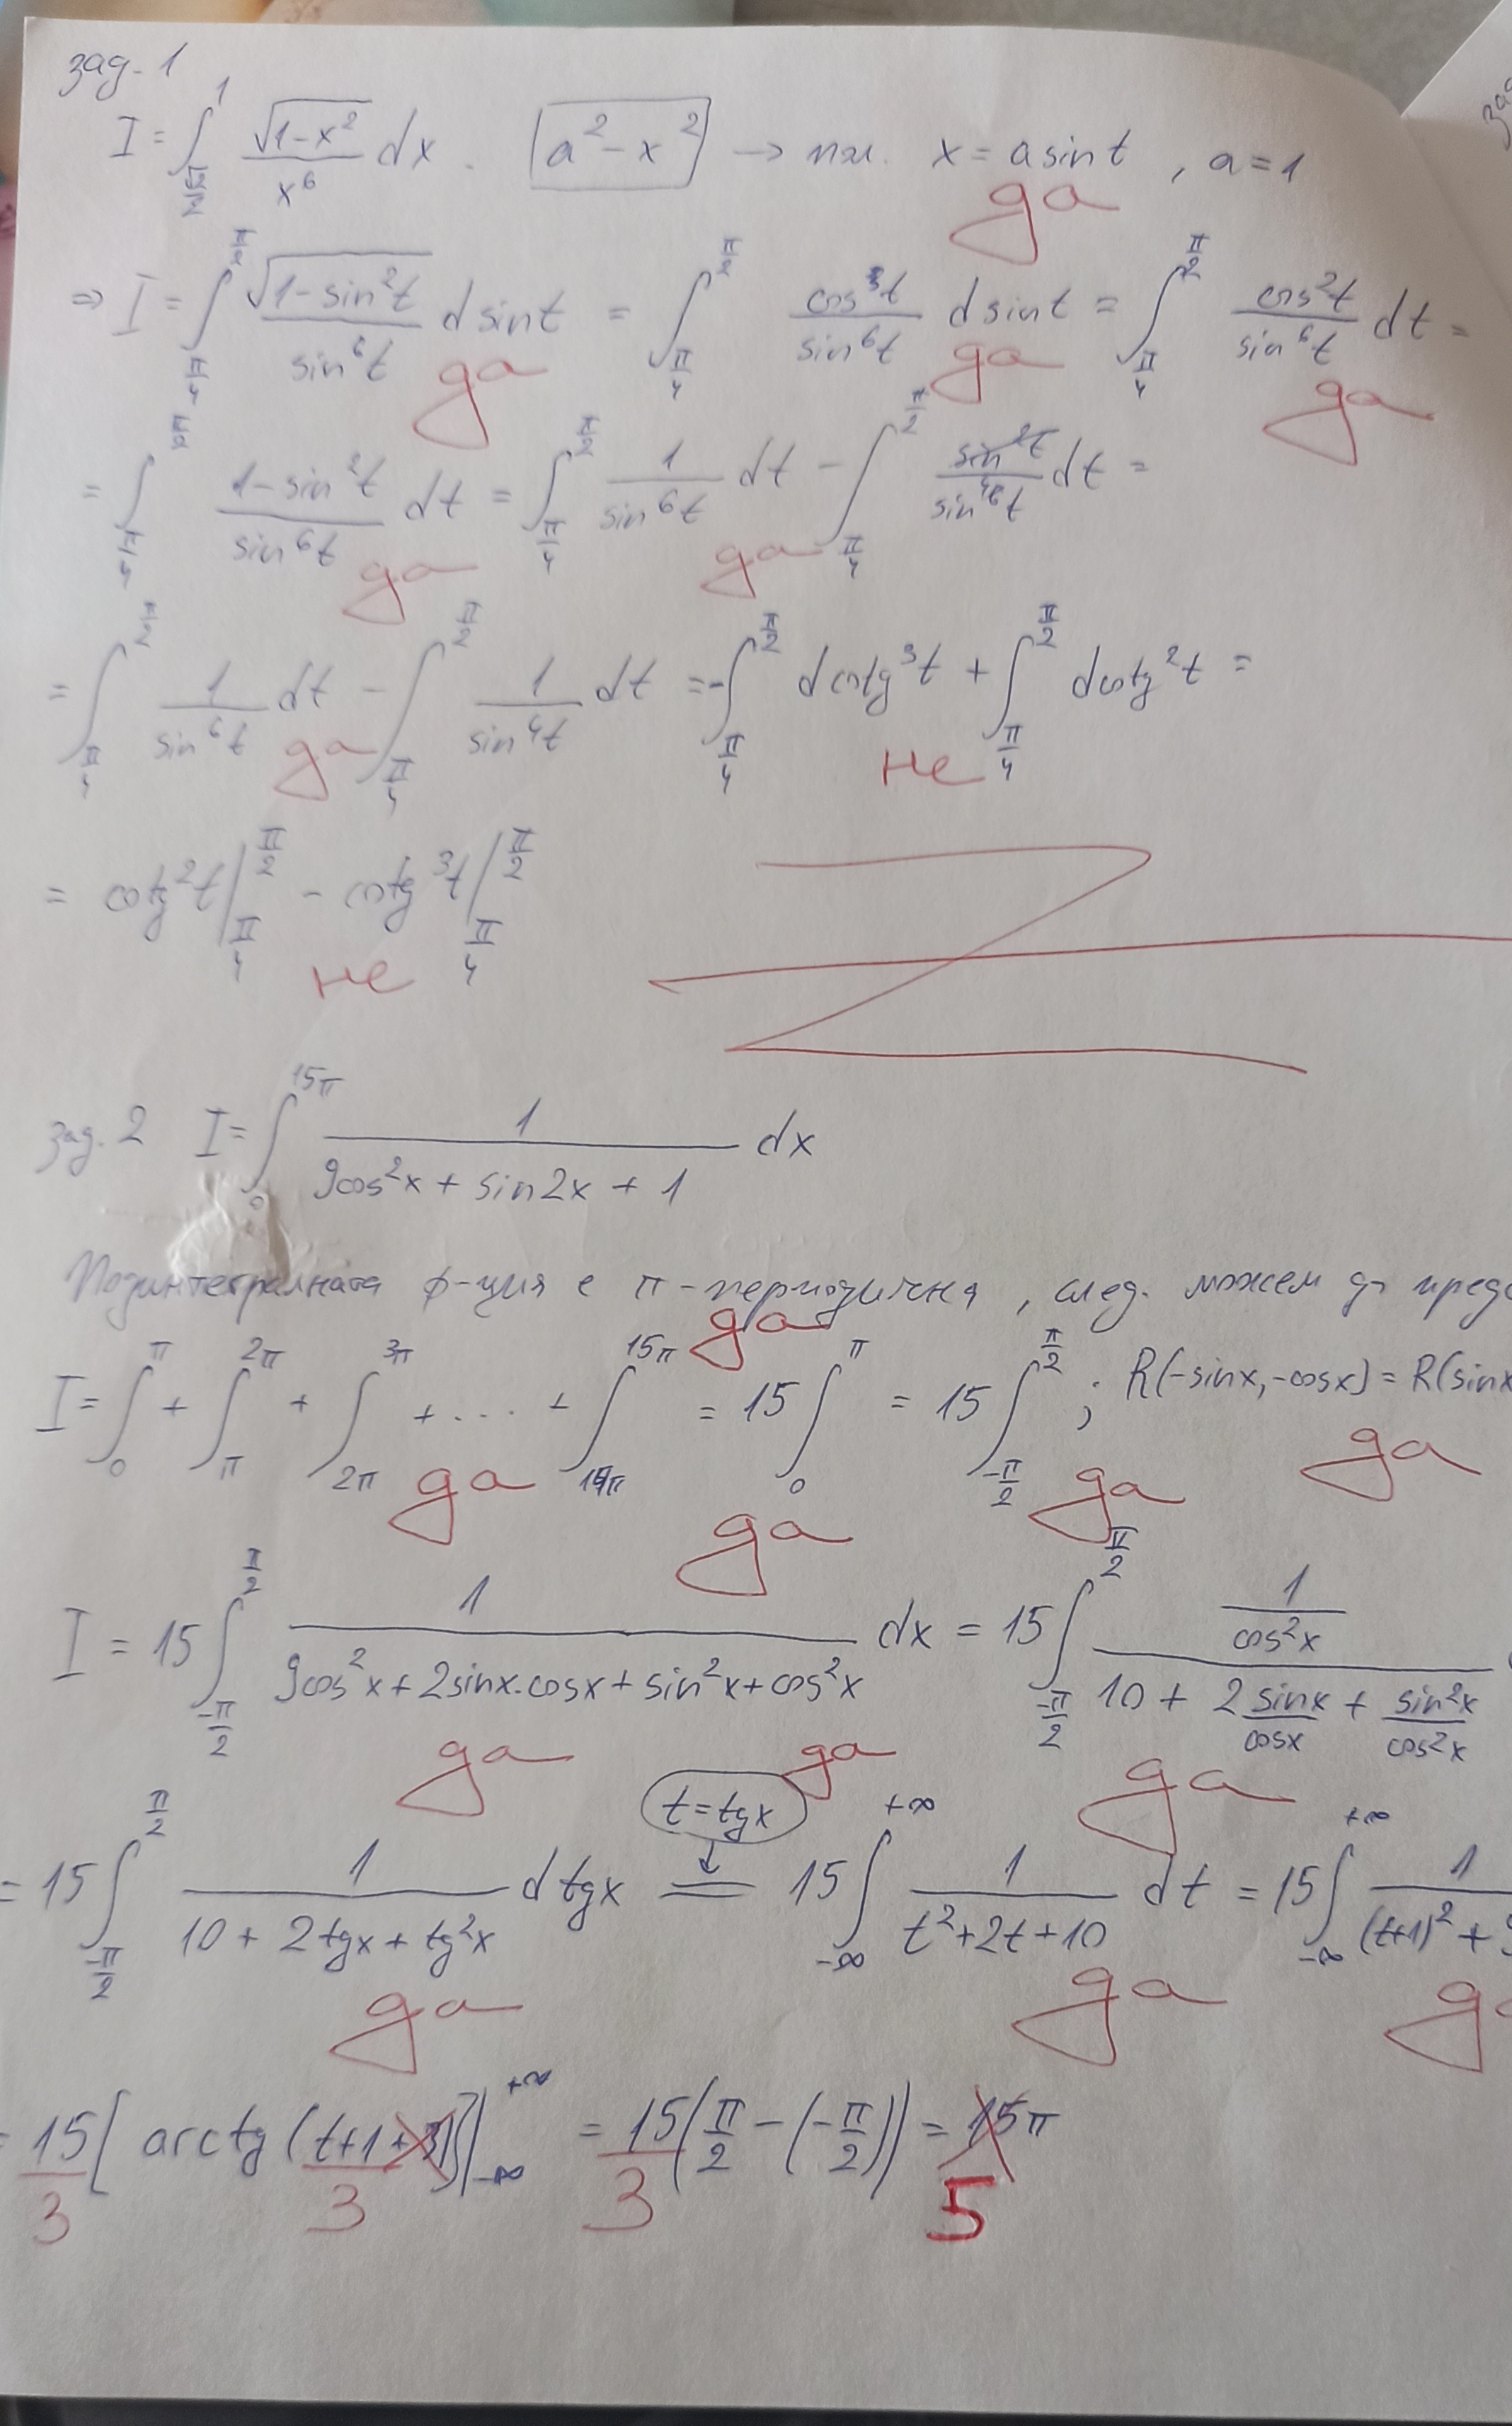 зад. 1
I = ∫_{√2/2}^{1} √(1-x²)/x⁶ dx. [a² - x²] → пол. x = a sin t, a = 1
да
⇒ I = ∫_{π/4}^{π/2} √(1-sin²t)/sin⁶t d sin t = ∫_{π/4}^{π/2} cos t/sin⁶t d sin t = ∫_{π/4}^{π/2} cos²t/sin⁶t dt =
да да да
= ∫_{π/4}^{π/2} (1-sin²t)/sin⁶t dt = ∫_{π/4}^{π/2} 1/sin⁶t dt - ∫_{π/4}^{π/2} sin²t/sin⁶t dt =
да да
= ∫_{π/4}^{π/2} 1/sin⁶t dt - ∫_{π/4}^{π/2} 1/sin⁴t dt = -∫_{π/4}^{π/2} d cotg³t + ∫_{π/4}^{π/2} d cotg²t =
да не
= cotg²t |_{π/4}^{π/2} - cotg³t |_{π/4}^{π/2}
не
зад. 2 I = ∫_{0}^{15π} 1/(9cos²x + sin2x + 1) dx
Подинтегралната ф-ция е π-периодична, след. можем да
да
I = ∫_{0}^{π} + ∫_{π}^{2π} + ∫_{2π}^{3π} + ... + ∫_{14π}^{15π} = 15 ∫_{0}^{π} = 15 ∫_{-π/2}^{π/2} ; R(-sinx, -cosx) = R(sinx
да да да да
I = 15 ∫_{-π/2}^{π/2} 1/(9cos²x + 2sinx.cosx + sin²x + cos²x) dx = 15 ∫_{-π/2}^{π/2} (1/cos²x)/(10 + 2 sinx/cosx + sin²x/cos²x)
да да да
t = tgx
= 15 ∫_{-π/2}^{π/2} 1/(10 + 2tgx + tg²x) d tgx = 15 ∫_{-∞}^{+∞} 1/(t² + 2t + 10) dt = 15 ∫_{-∞}^{+∞} 1/((t+1)² + 9
да да да
= 15 [arctg (t+1+3)] |_{-∞}^{+∞} = 15 (π/2 - (-π/2)) = 15π
3 3 3 5